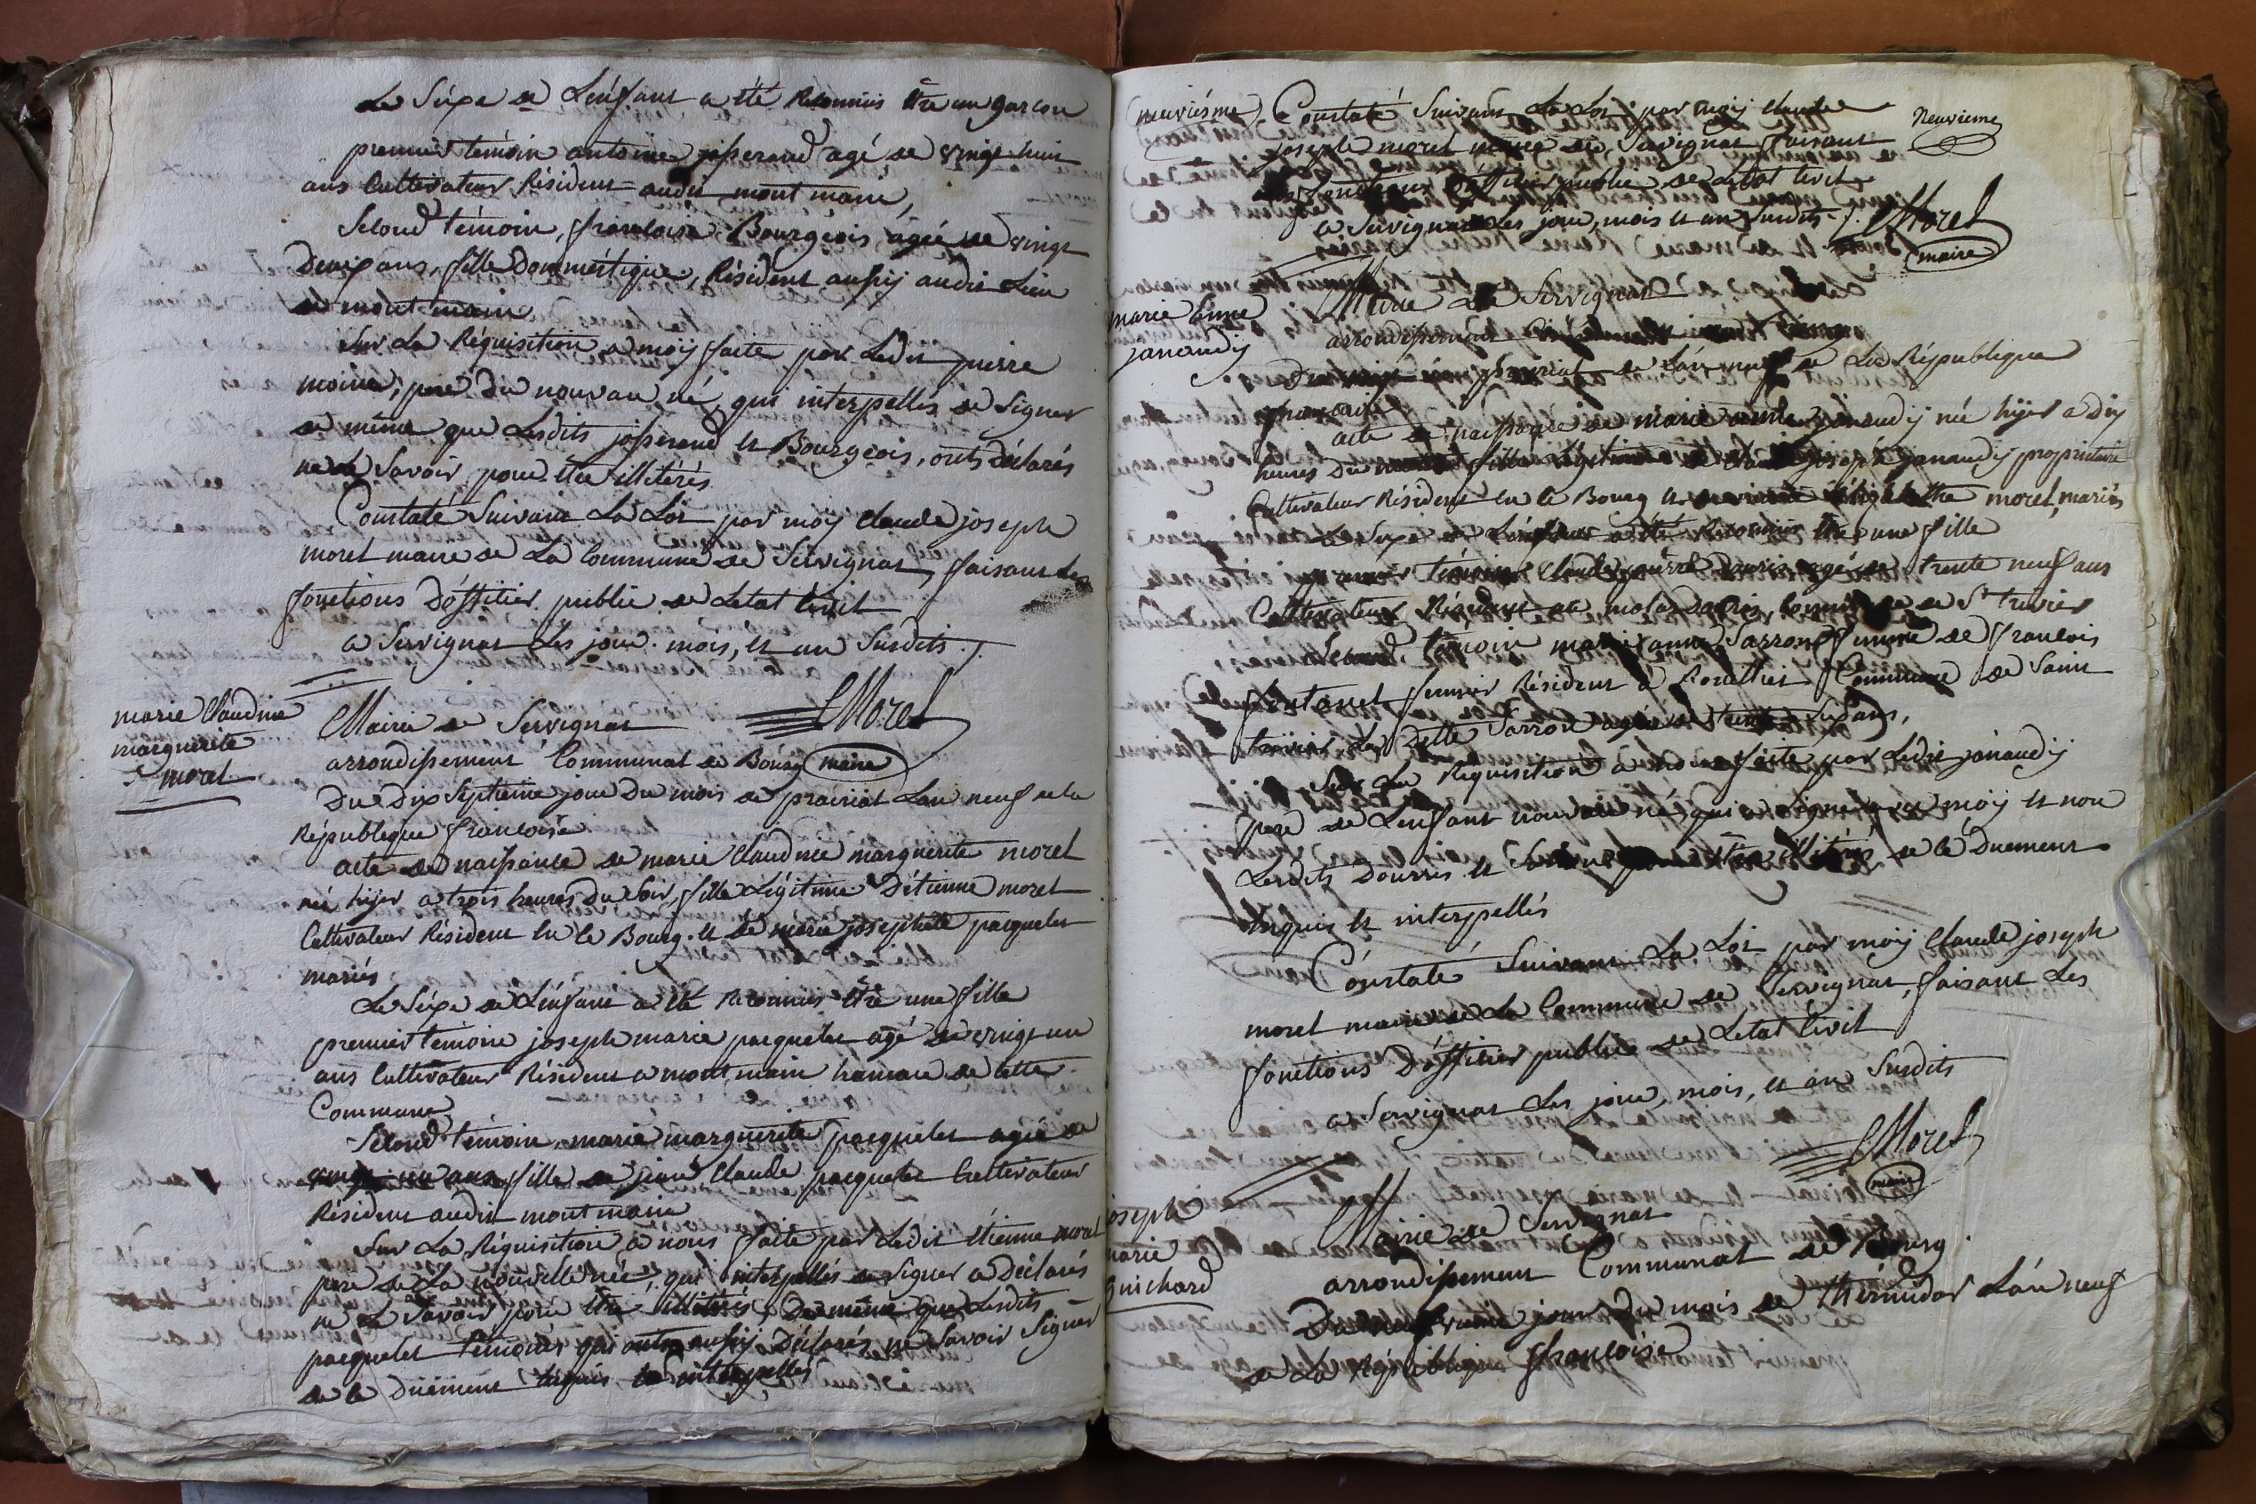 Le Sexe de Lenfant a eté Reconnus être un garcon
premier témoin antoine josserand agé de vingt huit
ans Cultivateur Résident audit mont main,
Second témoin, francoise Bourgeois agée de vingt
Deux ans, fille Dommestique, Résident aussy audit Lieu
de mont main
Sur La Réquisition a moy faite par Ledit pierre
moine, pere du nouveau né, qui interpellés de Signer
de même que Lesdits josserand et Bourgeois, onts déclarés
ne le Savoir pour etre illitérés
Constaté Suivant La Loi par moy Claude joseph
morel maire de La Commune de Servignat, faisant les
fonctions D'offitier public de Letat Civil
a Servignat Les jour, mois, et an Susdits ./.
CMorel
maire
marie Claudine
marguerite
morel
Mairie de Servignat
arrondissement Communal de Bourg
Du Dix Septieme jour Du mois de prairial Lan neuf de la
République francoise
acte de naissance de marie Claudine marguerite morel
née hijer a trois heures Du Soir, fille Légitime D'étienne morel
Cultivateur Résident en le Bourg. et de marie josephete pacquelet
mariés
Le Sexe de Lenfant a eté Reconnus être une fille
premier témoin joseph marie pacquelet agé de vingt un
ans Cultivateur Résident a mont main hameau de cette
Commune
Second témoin, marie marguerite pacquelet agée de
vingt un ans fille de jean Claude pacquelet Cultivateur
Résident audit mont main
Sur La Réquisition a nous faite par Ledit étienne morel
pere de La nouvelle née, qui interpellés de Signer a Déclarés
ne le Savoir pour être illitérés, De même que Lesdits
pacquelet témoins qui onts aussy Déclarés ne Savoir Signer
de ce Duëment enquis et interpellés
(neuvième)
Constaté Suivant La Loi par moy Claude
joseph morel maire de Servignat faisant
les fonctions D'offitier public de Letat Civil
a Servignat Les jour, mois et an Susdits ./.
Neuvieme
CMorel
maire
marie anne
janaudy
Mairie de Servignat
arrondissement
Du prairial de Lan neuf de La République
francoise
acte de naissance de marie anne janaudy née hijer a Dix
heures Du fille légitime de joseph janaudy propriétaire
Cultivateur Résident en le Bourg et morel, mariés
Le Sexe de Lenfant a eté Reconnus être une fille
premier témoin Claude pierre Dourris agé de trente neuf ans
Cultivateur Résident au molard de St trivier
Second témoin marie anne Sarron femme de francois
fontanel fermier Résident a Commune de Saint
trivier La Dette Sarron agée de trente Six ans,
Sur La Réquisition a nous faite par Ledit janaudy
pere de Lenfant nouveau né, qui a Signé avec moy et non
Lesdits Dourris et Sarron pour etre illitérés, de ce Duëment
enquis et interpellés
Constaté Suivant La Loi par moy Claude joseph
morel maire de La Commune de Servignat, faisant Les
fonctions D'offitier public de Letat Civil
a Servignat Les jour, mois, et an Susdits
CMorel
maire
joseph
marie
Guichard
Mairie de Servignat
arrondissement Communal de Bourg
Du jour Du mois de thérmidor Lan neuf
de La République francoise